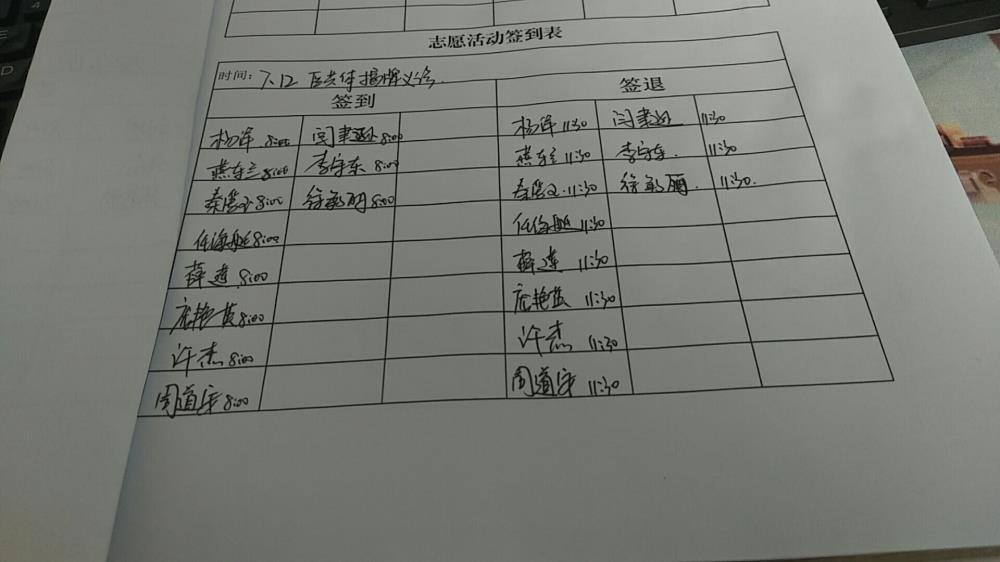 志愿活动签到表
时间：7.12 医共体揭牌义诊
签到 签退
杨军 8:00 闫 8:00 杨军 11:30 闫 11:30
燕东兰 8:00 李守东 8:00 燕东兰 11:30 李守东 11:30
秦 8:00 徐 丽 8:00 秦 11:30 徐 丽 11:30
任海艇 8:00 任海艇 11:30
薛莲 8:00 薛莲 11:30
庞艳 8:00 庞艳 11:30
许杰 8:00 许杰 11:30
周道 8:00 周道 11:30